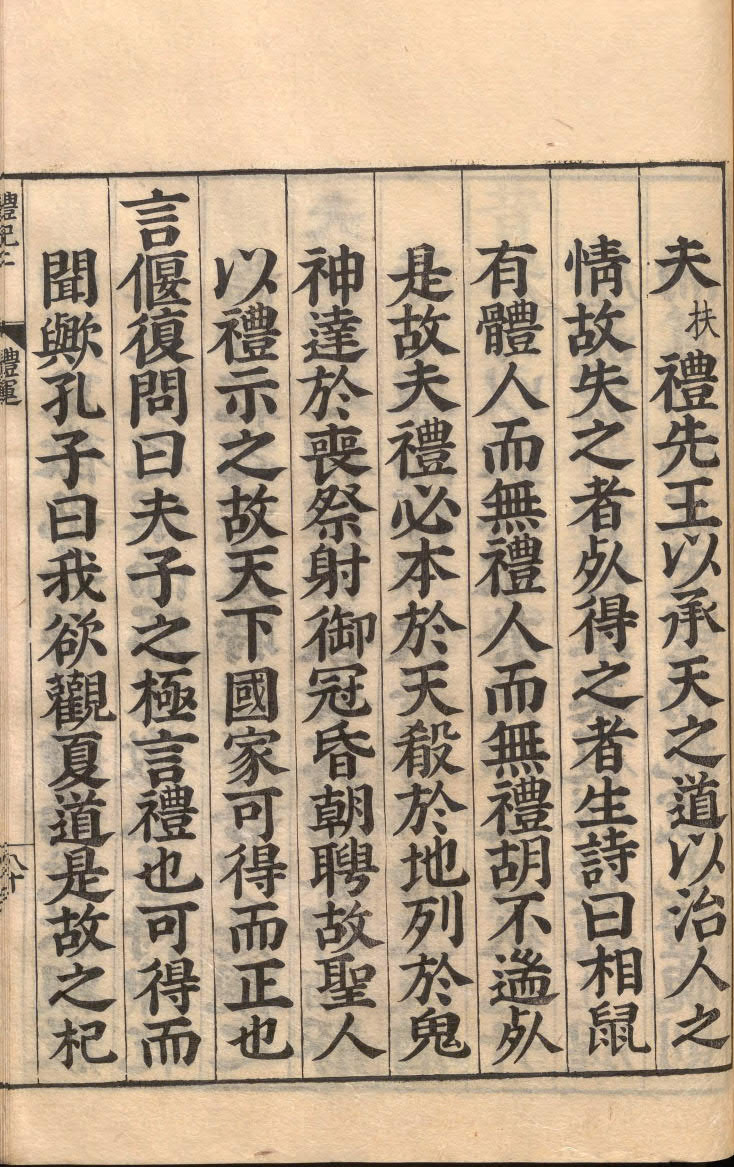 夫扶禮先王以承天之道以治人之
情故失之者死得之者生詩曰相鼠
有體人而無禮人而無禮胡不遄死
是故夫禮必本於天殽於地列於鬼
神達於喪祭射御冠昏朝聘故聖人
以禮示之故天下國家可得而正也
言偃復問曰夫子之極言禮也可得而
聞歟孔子曰我欲觀夏道是故之杞
禮記
禮運